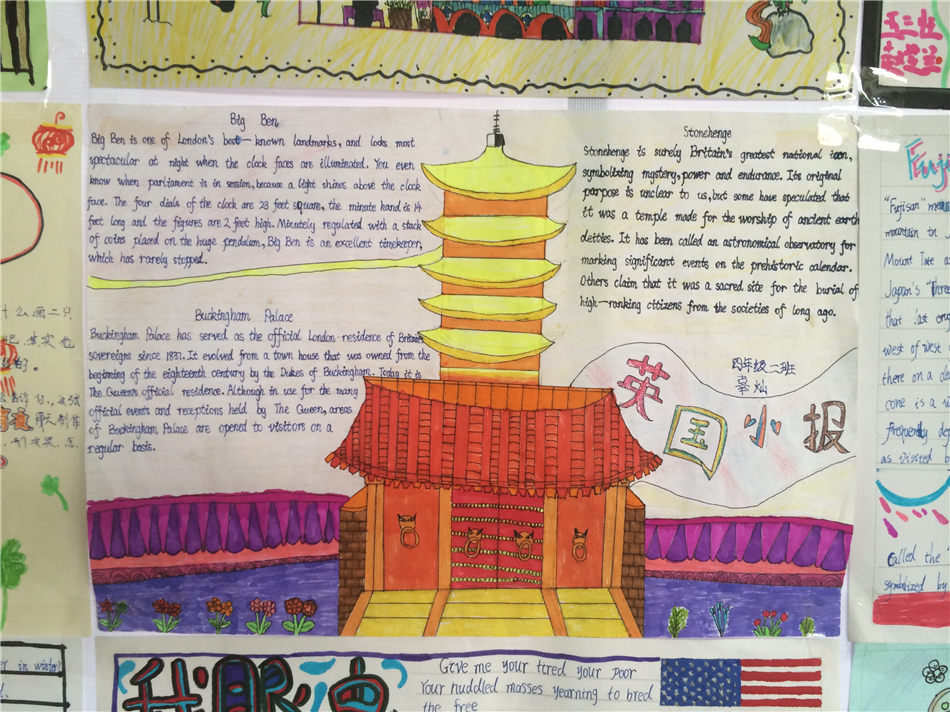 Big Ben
Big Ben is one of London's best-known landmarks, and looks most
spectacular at night when the clock faces are illuminated. You even
know when parliament is in session, because a light shines above the clock
face. The four dials of the clock are 23 feet square, the minute hand is 14
feet long and the figures are 2 feet high. Minutely regulated with a stack
of coins placed on the huge pendulum, Big Ben is an excellent timekeeper,
which has rarely stopped.
Buckingham Palace
Buckingham Palace has served as the official London residence of Britain's
sovereigns since 1837. It evolved from a town house that was owned from the
beginning of the eighteenth century by the Dukes of Buckingham. Today it is
The Queen's official residence. Although in use for the many
official events and receptions held by The Queen, areas
of Buckingham Palace are opened to visitors on a
regular basis.
Stonehenge
Stonehenge is surely Britain's greatest national icon,
symbolizing mystery, power and endurance. Its original
purpose is unclear to us, but some have speculated that
it was a temple made for the worship of ancient earth
deities. It has been called an astronomical observatory for
marking significant events on the prehistoric calendar.
Others claim that it was a sacred site for the burial of
high-ranking citizens from the societies of long ago.
四年级二班
英国小报
什么画二只
其实也
"Fujisan"
mountain in
Mount Tate
Japan's "Three
that last
west of
there on a
come is a
frequently
as
Called the
symbolized by
in winter
Give me your tired your poor
Your huddled masses yearning to bred
the free